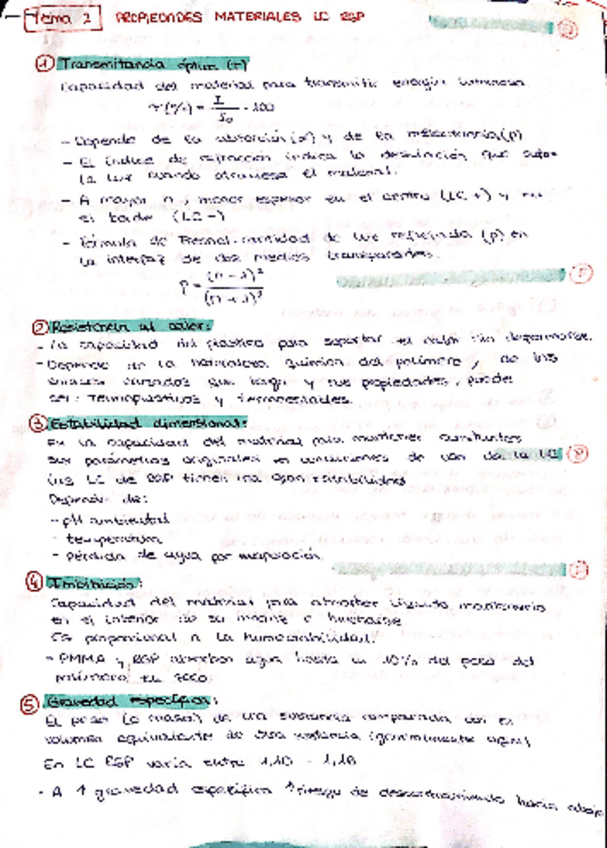 Tema 2 PROPIEDADES MATERIALES LC RGP
① Transmitancia óptica (τ)
Capacidad del material para transmitir energía luminosa
τ(%) = I / I₀ · 100
- Depende de la absorción (α) y de la reflectancia (ρ)
- El índice de refracción indica la desviación que sufre
la luz cuando atraviesa el material.
- A mayor n, menor espesor en el centro (LC +) y en
el borde (LC -)
- Fórmula de Fresnel: cantidad de luz reflejada (ρ) en
la interfaz de dos medios transparentes.
ρ = (n - 1)² / (n + 1)²
② Resistencia al calor:
- La capacidad del plástico para soportar el calor sin deformarse.
- Depende de la naturaleza química del polímero, de los
enlaces cruzados que haya y sus propiedades, puede
ser: termoplásticos y termoestables.
③ Estabilidad dimensional:
Es la capacidad del material para mantener constantes
sus parámetros originales en condiciones de uso de la LC
Las LC de RGP tienen una gran estabilidad
Depende de:
- pH ambiental
- temperatura
- pérdida de agua por evaporación
④ Imbibición:
Capacidad del material para absorber líquido, mantenerlo
en el interior de su matriz e hincharse
Es proporcional a la humectabilidad.
- PMMA y RGP absorben agua hasta un 10% del peso del
polímero en seco.
⑤ Gravedad específica:
El peso (o masa) de una sustancia comparada con el
volumen equivalente de otra sustancia (generalmente agua)
En LC RGP varía entre 1,10 - 1,18
- A ↑ gravedad específica ↑ riesgo de descentramiento hacia abajo